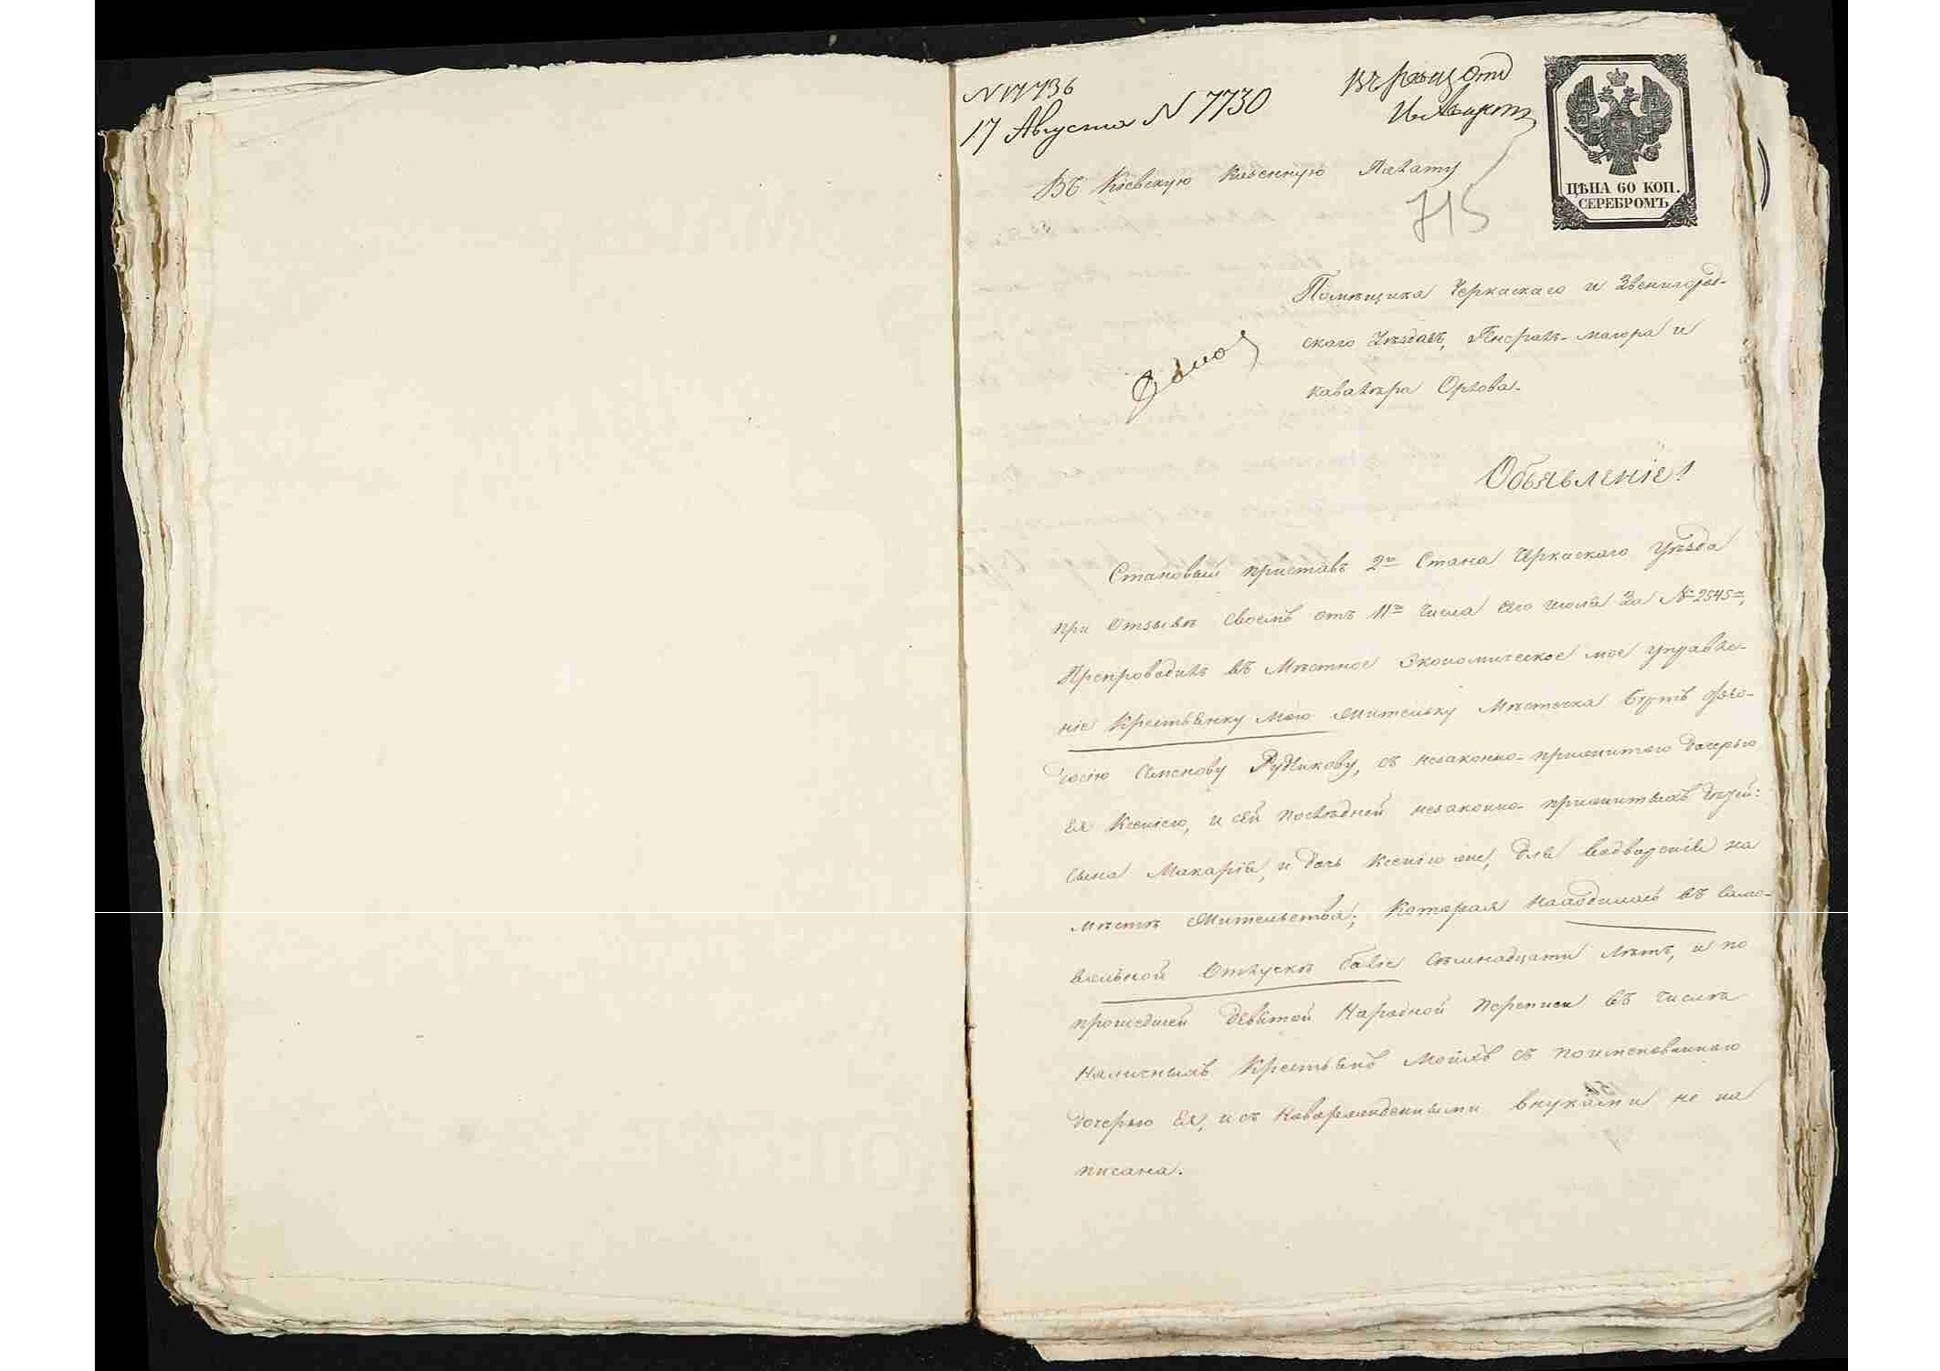 N 17736
17 Августа N 7730
Въ
ЦѢНА 60 КОП.
СЕРЕБРОМЪ
Въ Кіевскую Казенную Палату
715
Помѣщика Черкаскаго и Звенигород-
скаго Уѣздовъ, Генералъ-маіора и
кавалера Орлова.
Объявленіе!
Становый приставъ 2го Стана Черкаскаго Уѣзда
при отзывѣ своемъ отъ 11го числа сего іюля за № 2545м,
Препроводилъ въ Мѣстное Экономическое мое управле-
ніе Крестьянку мою Жительку Мѣстечка
досію Семенову Рудикову, съ незаконно-прижитою дочерью
Ея Ксеніею, и сей послѣдней незаконно-прижитыхъ дѣтей:
сына Макарія, и дочь Ксенію же, для водворенія на
мѣстѣ Жительства; Которая находилась въ само-
вольной Отлускѣ болѣе семнадцати лѣтъ, и по
прошедшей девятой Народной Переписи въ числѣ
Наличныхъ Крестьянъ Моихъ съ поименованною
дочерью Ея, и съ Новорожденными внуками не на
писана.